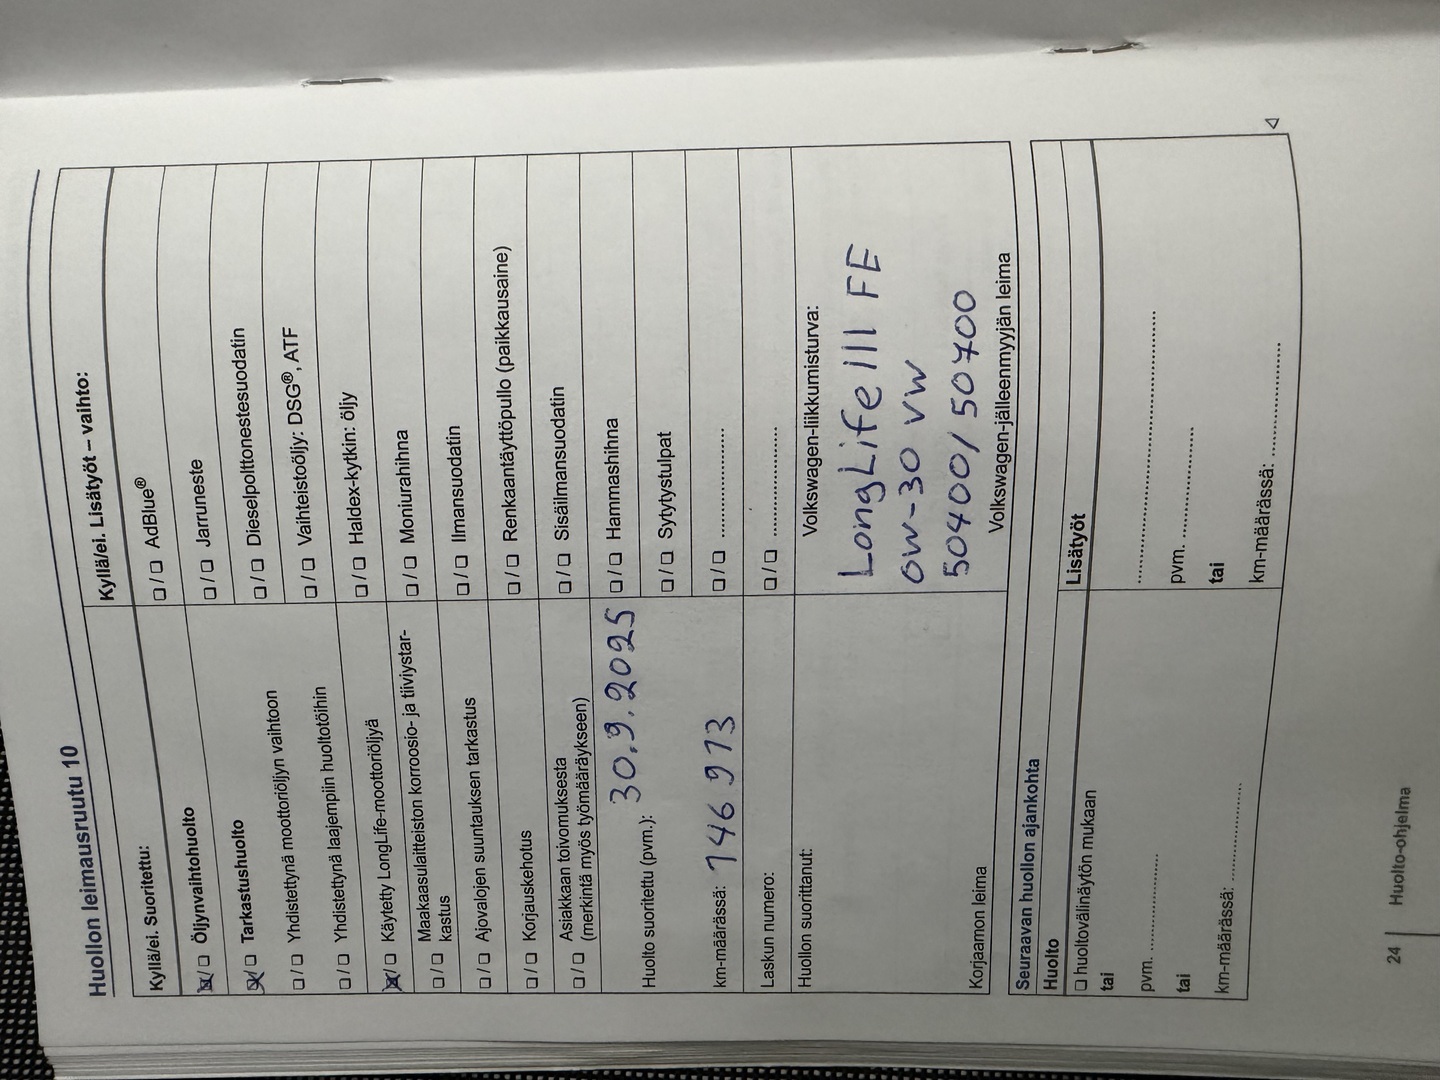 Huollon leimausruutu 10
Kyllä/ei. Suoritettu:
☒/☐ Öljynvaihtohuolto
☒/☐ Tarkastushuolto
☐/☐ Yhdistettynä moottoriöljyn vaihtoon
☐/☐ Yhdistettynä laajempiin huoltotöihin
☒/☐ Käytetty LongLife-moottoriöljyä
Maakaasulaitteiston korroosio- ja tiiviystar-
☐/☐ kastus
☐/☐ Ajovalojen suuntauksen tarkastus
☐/☐ Korjauskehotus
Asiakkaan toivomuksesta
☐/☐ (merkintä myös työmääräykseen)
Huolto suoritettu (pvm.): 30.9.2025
km-määrässä: 146 913
Laskun numero:
Huollon suorittanut:
Korjaamon leima
Kyllä/ei. Lisätyöt – vaihto:
☐/☐ AdBlue®
☐/☐ Jarruneste
☐/☐ Dieselpolttonestesuodatin
☐/☐ Vaihteistoöljy: DSG®, ATF
☐/☐ Haldex-kytkin: öljy
☐/☐ Moniurahihna
☐/☐ Ilmansuodatin
☐/☐ Renkaantäyttöpullo (paikkausaine)
☐/☐ Sisäilmansuodatin
☐/☐ Hammashihna
☐/☐ Sytytystulpat
☐/☐ ....................
☐/☐ ....................
Volkswagen-liikkumisturva:
LongLife III FE
0W-30 VW
50400/50700
Volkswagen-jälleenmyyjän leima
Seuraavan huollon ajankohta
Huolto
☐ huoltovälinäytön mukaan
tai
pvm. ....................
tai
km-määrässä: ....................
Lisätyöt
..................................................
pvm. ....................
tai
km-määrässä: ....................
◁
24 | Huolto-ohjelma